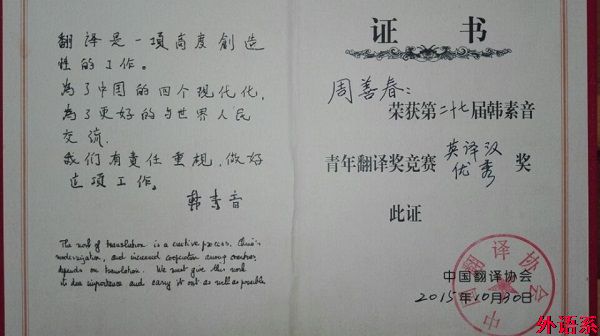 翻译是一項高度創造
性的工作。
为了中国的四个现代化,
为了更好的与世界人民
交流,
我们有責任重視,做好
这項工作。
韩素音
The work of translation is a creative process. China's
modernization, and increased cooperation among countries
depends on translation. We must give this work
its due importance and carry it out as well as possible
证 书
周善春:
荣获第二十七届韩素音
青年翻译奖竞赛 英译汉
优秀 奖
此证
中国翻译协会
中国翻译协会
2015年10月30日
外语系